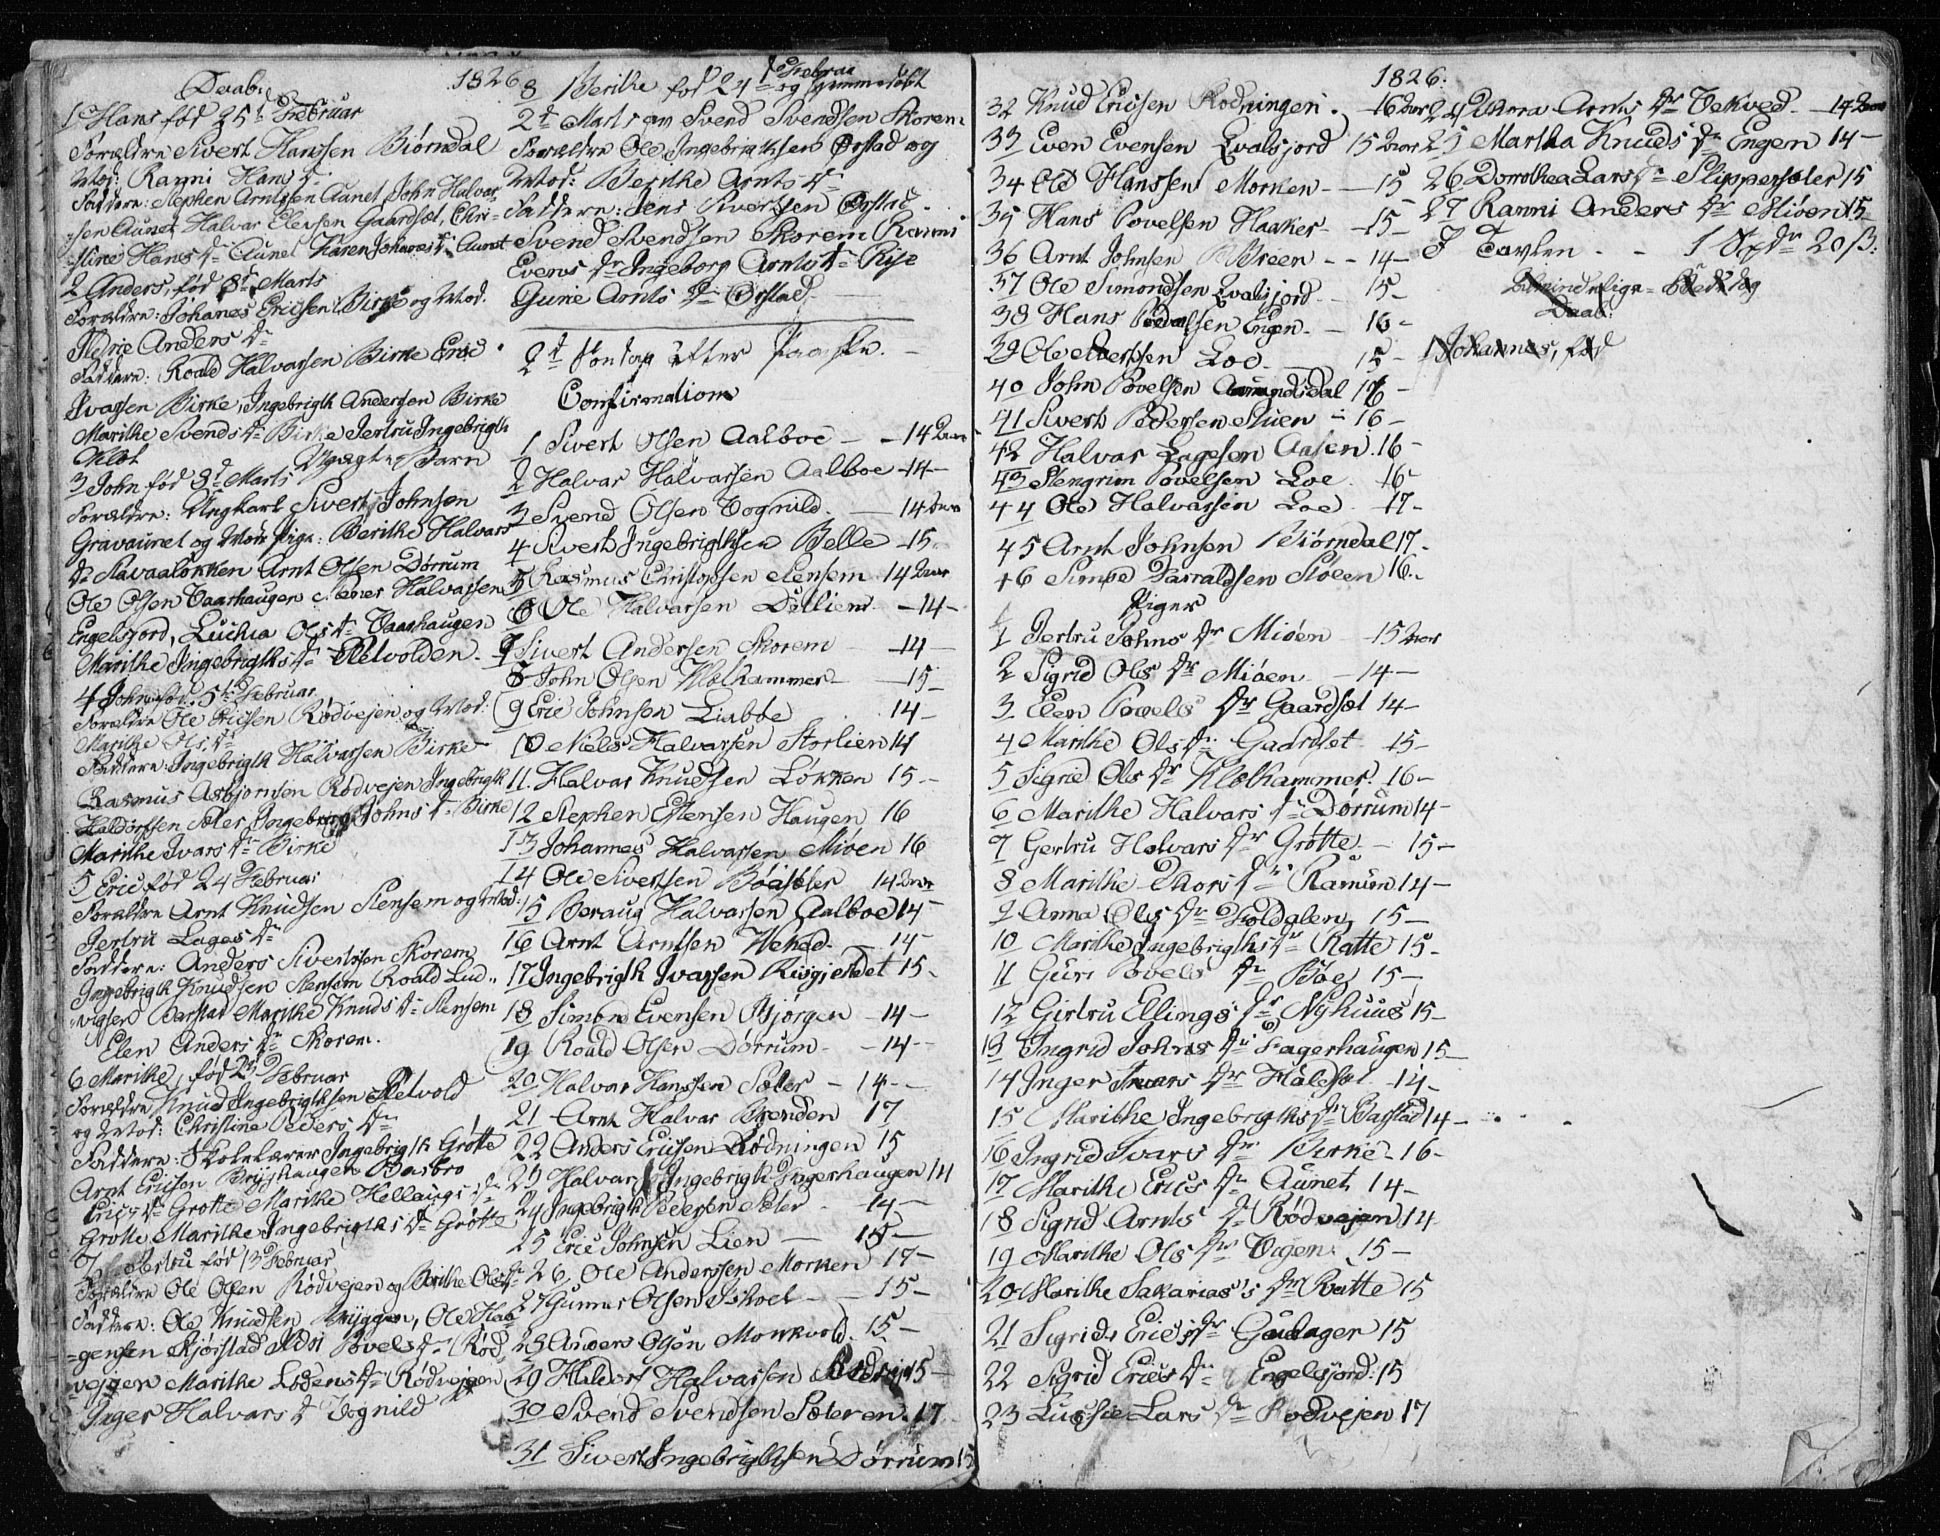 Daab. 1826
1 Hans fød 25d Februar
Forældre Sivert Hanssen Biørndal
Mod: Ranni Hans Dr
Faddere: Stephen Arntssen Aunet John Halvar
sen Aunet Halvar Elevsen Gaardsæt, Chri-
stine Hans Dr Aunet Karen Johanes Dr Aunet
2 Anders, fød 8d Marts
Forældre: Johanes Ericsen Birke og Mod:
Marie Anders Dr
Faddere: Roald Halvarsen Birke Eric
Ivarsen Birke, Ingebrigth Andersen Birke
Marithe Svends Dr Birke Jertru Ingebrigth
3 John fød 3d Marts Uægte Barn
Forældre: Ungkarl Sivert Johnsen
Gravaunet og Mor Pige: Berithe Halvars
Dr Slavaaløkken Arnt Olsen Dørrum
Ole Olsen Vaarhaugen Halvarsen
Engelsjord, Luchia Ols Dr Vaarhaugen
Marithe Ingebrigths Dr Sletvolden
4 John fød 5te Februar
Forældre Ole Ericsen Rødvejen og Mod:
Marithe Ols Dr
Faddere: Ingebrigth Halvarsen Birke
Rasmus Asbjørnsen Rødvejen Ingebrigth
Haldorssen Sæter Ingeborg Johns Dr Birke
Marithe Ivars Dr Birke
5 Eric fød 24 Februar
Forældre Arnt Knudsen Stensem og Mod:
Jertru Lages Dr
Faddere: Anders Sivertsen Skorem
Ingebrigth Knudsen Stensem Roald Lud-
vigsen Barstad Marithe Knuds Dr Stensem
Elen Anders Dr Skorem.
6 Marithe, fød 23 Februar
Forældre Knud Ingebrigthsen Sletvold
og Mod: Christine Peders Dr
Faddere: Skolelærer Ingebrigth Grøtte
Arnt Ericsen Brygshaugen Barbro
Erics Dr Grøtte Marithe Hellaugs Dr
Grøtte Marithe Ingebrigths Dr Grøtte
7 Jertru fød 13 Februar
Forældre Ole Olsen Rødvejen og Berithe Ols Dr
Faddere: Ole Knudsen Myggen, Ole Haa-
gensen Bjørstad Povels Dr Rød-
vejen Marithe Lodens Dr Rødvejen
Inger Halvars Dr Vognild
8 Berithe fød 24 Februar og hjemmedøbt
2d Marts av Svend Svendsen Skorem
Forældre Ole Ingebrigthsen Ørstad og
Mod: Berithe Arnts Dr
Faddere: Jens Sivertsen Ørstad
Svend Svendsen Skorem Ranni
Evens Dr Ingeborg Arnts Dr Rise
Gurie Arnts Dr Ørstad
2d Søndag efter Paaske.
Confirmation
1 Sivert Olsen Aalboe - 14 Aar
2 Halvar Halvarsen Aalboe - 14 -
3 Svend Olsen Vognild. - 14 Aar
4 Sivert Ingebrigthsen Belle - 15
5 Rasmus Christopsen Stensem 14 Aar
6 Ole Halvarsen Dettlien - 14 -
7 Sivert Andersen Skorem - 14 -
8 John Olsen Klethammer - 15 -
9 Eric Johnsen Liaboe 14 -
10 Niels Halvarsen Storlien 14
11 Halvar Knudsen Løkken 15 -
12 Stephen Estensen Haugen 16
13 Johannes Halvarsen Mioen 16
14 Ole Sivertsen Bøasæter 14 Aar
15 Beraug Halvarsen Aalboe 14 -
16 Arnt Arntsen Veked. 14 -
17 Ingebrigth Ivarsen Risgjerdet 15
18 Simon Evensen Bjørgen - 14 -
19 Roald Olsen Dørrum - 14 -
20 Halvar Hanssen Sæter - 14 -
21 Arnt Halvar Brenden 17
22 Anders Ericsen Rødningen 15
23 Halvar Ingebrigth Fagerhaugen 14
24 Ingebrigth Pedersen Sæter 14 -
25 Eric Johnsen Lien - 15 -
26 Ole Anderssen Morken 17 -
27 Gunner Olsen - 15 -
28 Anders Olsen Morkvold 15 -
29 Haldor Halvarsen Rødvej 15 -
30 Svend Svendsen Sæteren 17
31 Sivert Ingebrigthsen Dørrum 15
1826.
32 Knud Ericsen Rodningen. - 16 Aar
33 Even Evensen Evalsjord 15 Aar
34 Ole Hanssen Morken - 15
35 Hans Povelsen Haaker - 15 -
36 Arnt Johnsen Breen - 14 -
37 Ole Simondsen Evalsjord 15 -
38 Hans Povelsen Engen - 16 -
39 Ole Iversen Loe 15 -
40 John Povelsen Aamundsdal 16 -
41 Sivert Pedersen Stuen - 16 -
42 Halvar Lagesen Aasen 16 -
43 Stengrim Povelsen Loe 16 -
44 Ole Halvarsen Loe 17 -
45 Arnt Johnsen Biørndal 17 -
46 Simoe Haraldsen Stoeen 16 -
Piger
1 Jertru Johns Dr Mioen - 15 Aar
2 Sigrid Ols Dr Mioen - 14 -
3 Elen Povels Dr Gaardsæt 14 -
4 Marithe Ols Dr Gardset 15 -
5 Sigrid Ols Dr Klethammer 16 -
6 Marithe Halvars Dr Dørrum 14 -
7 Gertru Halvars Dr Grøtte - 15 -
8 Marithe Thors Dr Ramsøn 14 -
9 Anna Ols Dr Foldalen 15 -
10 Marithe Ingebrigths Dr Ratte 15 -
11 Guri Povels Dr Bøe 15 -
12 Girtru Ellings Dr Nyhuus 15 -
13 Ingrid Johns Dr Fagerhaugen 15 -
14 Inger Ivars Dr Haldsæt 14 -
15 Marithe Ingebrigths Dr Barstad 14 -
16 Ingrid Ivars Dr Birke - 16 -
17 Marithe Erics Dr Aunet 14 -
18 Sigrid Arnts Dr Rødvejen 14
19 Marithe Ols Dr Vigen 15 -
20 Marithe Sakarias's Dr Ratte 15
21 Sigrid Erics Dr Gulager 15
22 Sigrid Erics Dr Engelsjord: 15
23 Lussie Lars Dr Rodvejen 17
24 Anna Arnts Dr Vekved - 14 Aar
25 Martha Knuds Dr Engem 14 -
26 Dorrothea Lars Dr Slippersæter 15
27 Ranni Anders Dr Mioen 15
I Tavlen - - 1 Spdr 20 ß.
Almindelige Bededag
Daab:
1 Johannes, fød